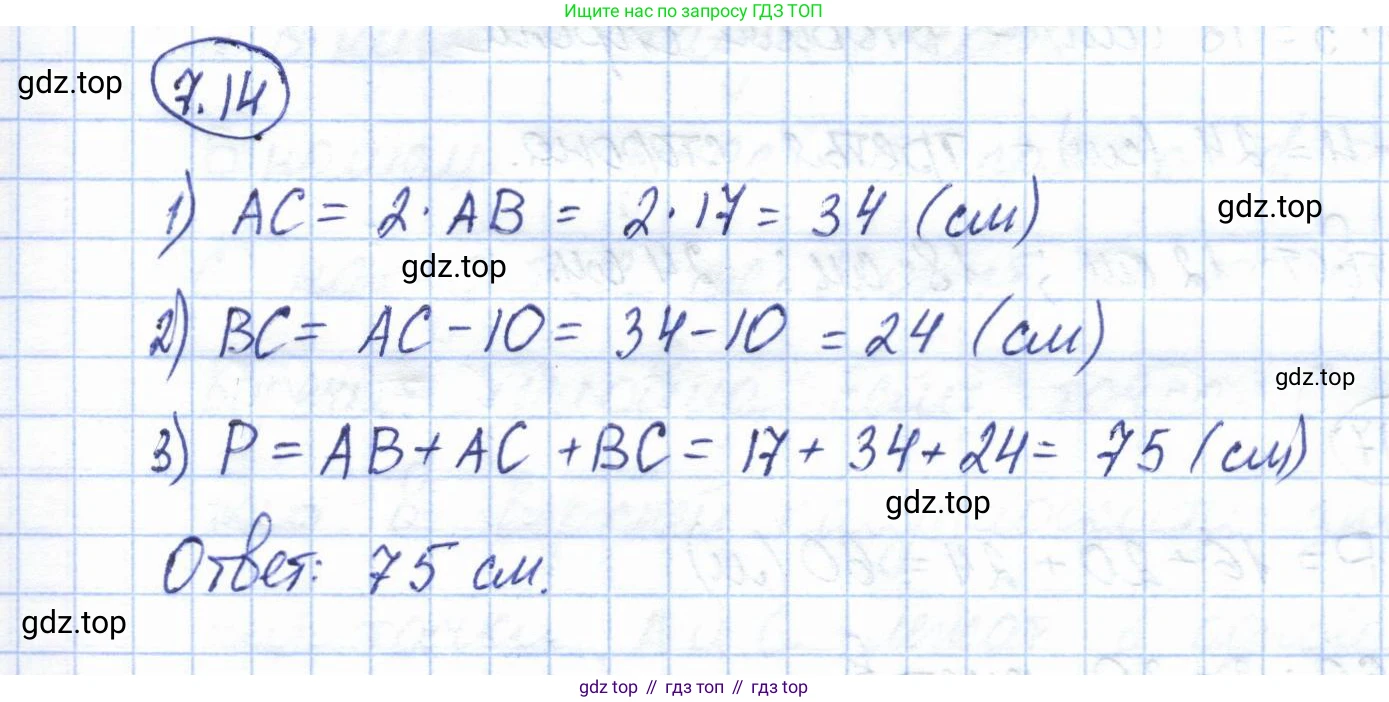 Ищите нас по запросу ГДЗ ТОП
gdz.top
7.14
1) AC = 2 · AB = 2 · 17 = 34 (см)
gdz.top
gdz.top
2) BC = AC - 10 = 34 - 10 = 24 (см)
gdz.top
3) P = AB + AC + BC = 17 + 34 + 24 = 75 (см)
gdz.top
Ответ: 75 см.
gdz.top
gdz top // гдз топ // гдз top